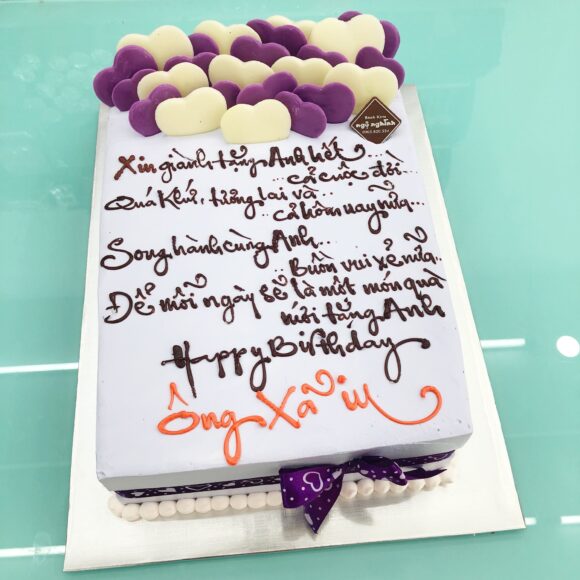 Bánh Kem
ngộ nghĩnh
Xin giành tặng Anh hết...
...cả cuộc đời...
Quá Khứ, tương lai và...
...cả hôm nay nữa...
Song hành cùng Anh...
...Buồn vui xẻ nữa...
Để mỗi ngày sẽ là một món quà
mới tặng Anh
Happy Birthday
Ông Xã iu